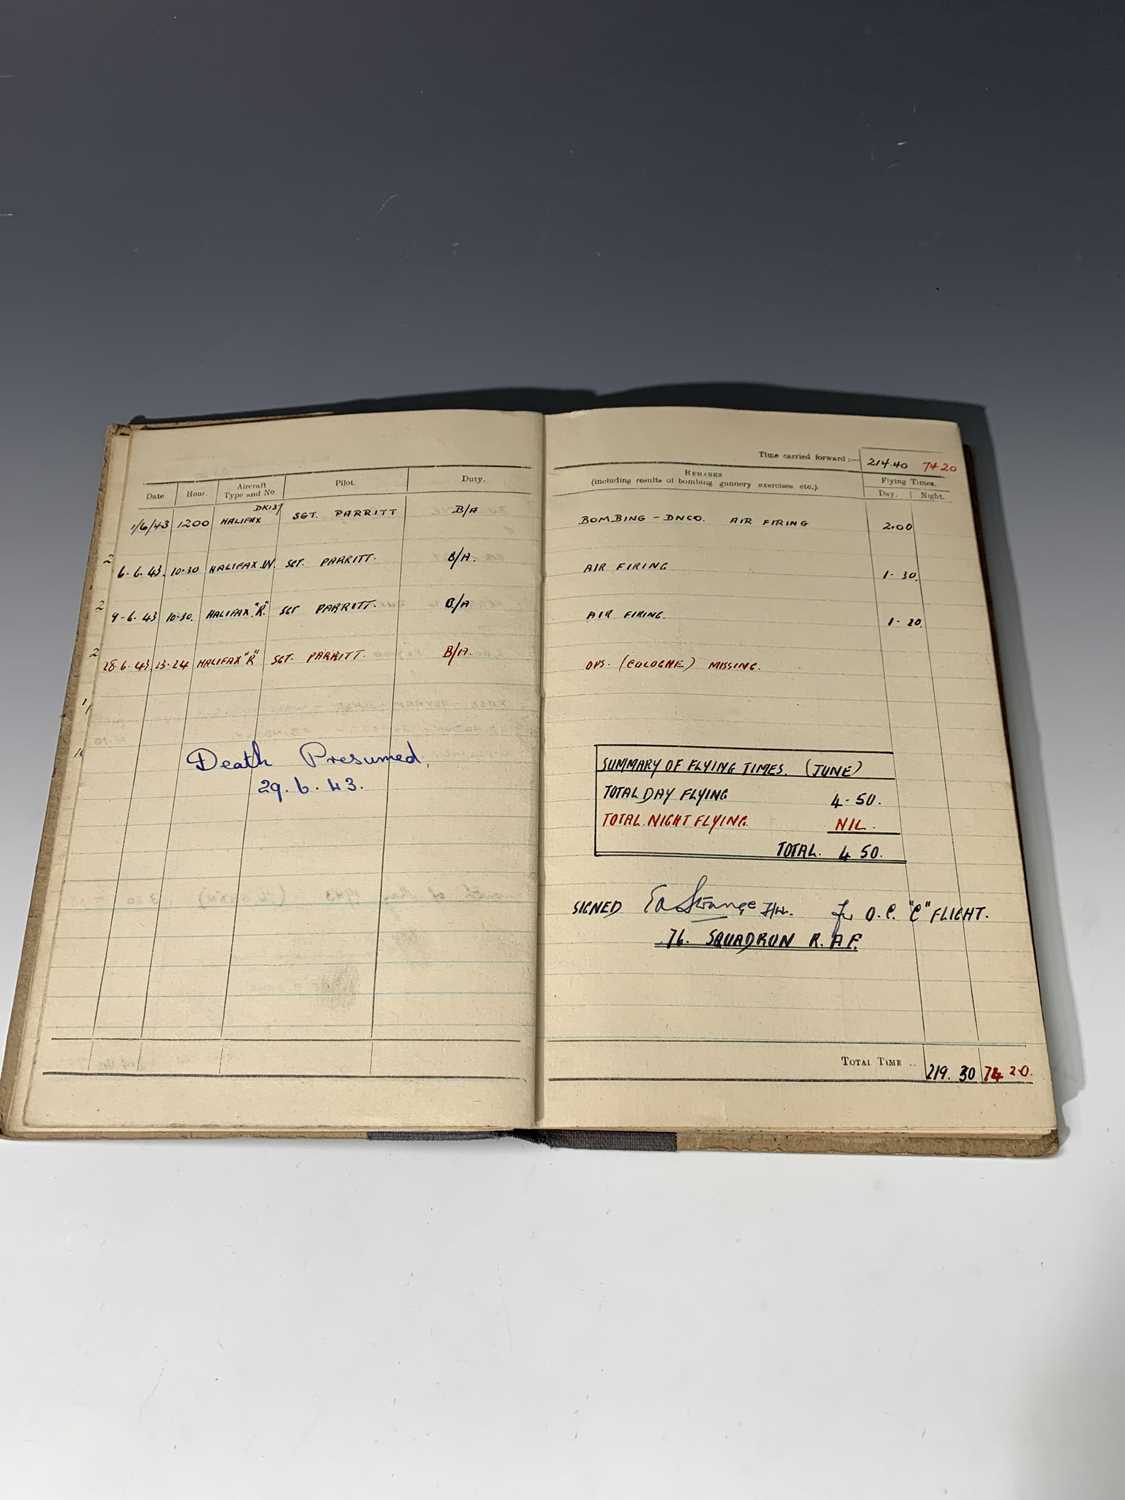 Time carried forward :— 214.40 74 20
Date Hour. Aircraft Type and No. Pilot. Duty. REMARKS (including results of bombing gunnery exercises etc.). Flying Times. Day. Night.
1/6/43 1200 HALIFAX SGT. PARRITT B/A BOMBING - DNCO. AIR FIRING 2.00
6.6.43. 10.30 HALIFAX SGT. PARRITT. B/A. AIR FIRING 1-30.
9-6.43 10.30. HALIFAX "R". SGT PARRITT. B/A AIR FIRING. 1-20.
28.6.43. 23.24 HALIFAX "R" SGT. PARRITT. B/A. OPS. (COLOGNE) MISSING.
Death Presumed.
29.6.43.
SUMMARY OF FLYING TIMES. (JUNE)
TOTAL DAY FLYING 4-50.
TOTAL NIGHT FLYING. NIL.
TOTAL. 4 50.
SIGNED Strange for O.C. "C" FLIGHT.
76. SQUADRON R.A.F.
TOTAL TIME .. 219. 30 74 20.